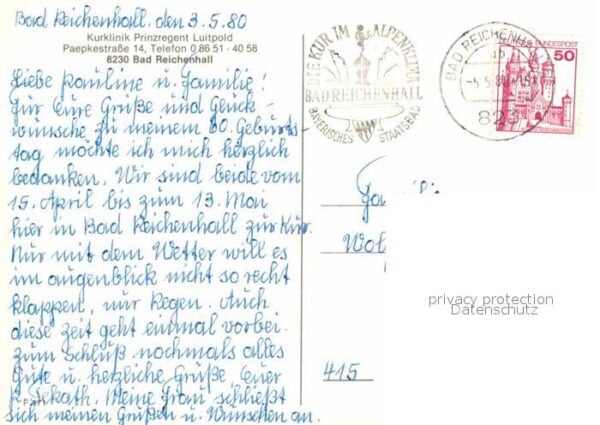 Bad Reichenhall. den 3.5.80
Kurklinik Prinzregent Luitpold
Paepkestraße 14, Telefon 0 86 51 - 40 58
8230 Bad Reichenhall
Liebe Pauline u. Familie!
Für Eure Grüße und Glück-
wünsche zu meinem 80. Geburts-
tag möchte ich mich herzlich
bedanken. Wir sind beide vom
15. April bis zum 13. Mai
hier in Bad Reichenhall zur Kur.
Nur mit dem Wetter will es
im augenblick nicht so recht
klappen, nur Regen. Auch
diese Zeit geht einmal vorbei.
Zum Schluß nochmals alles
Gute u. herzliche Grüße, Euer
Meine Frau schließt
sich meinen Grüßen u. Wünschen an.
DIE KUR IM ALPENKLIMA
BAD REICHENHALL
BAYERISCHES STAATSBAD
BAD REICHENHALL
823
DEUTSCHE BUNDESPOST
50
Fa
Wol
415
privacy protection
Datenschutz